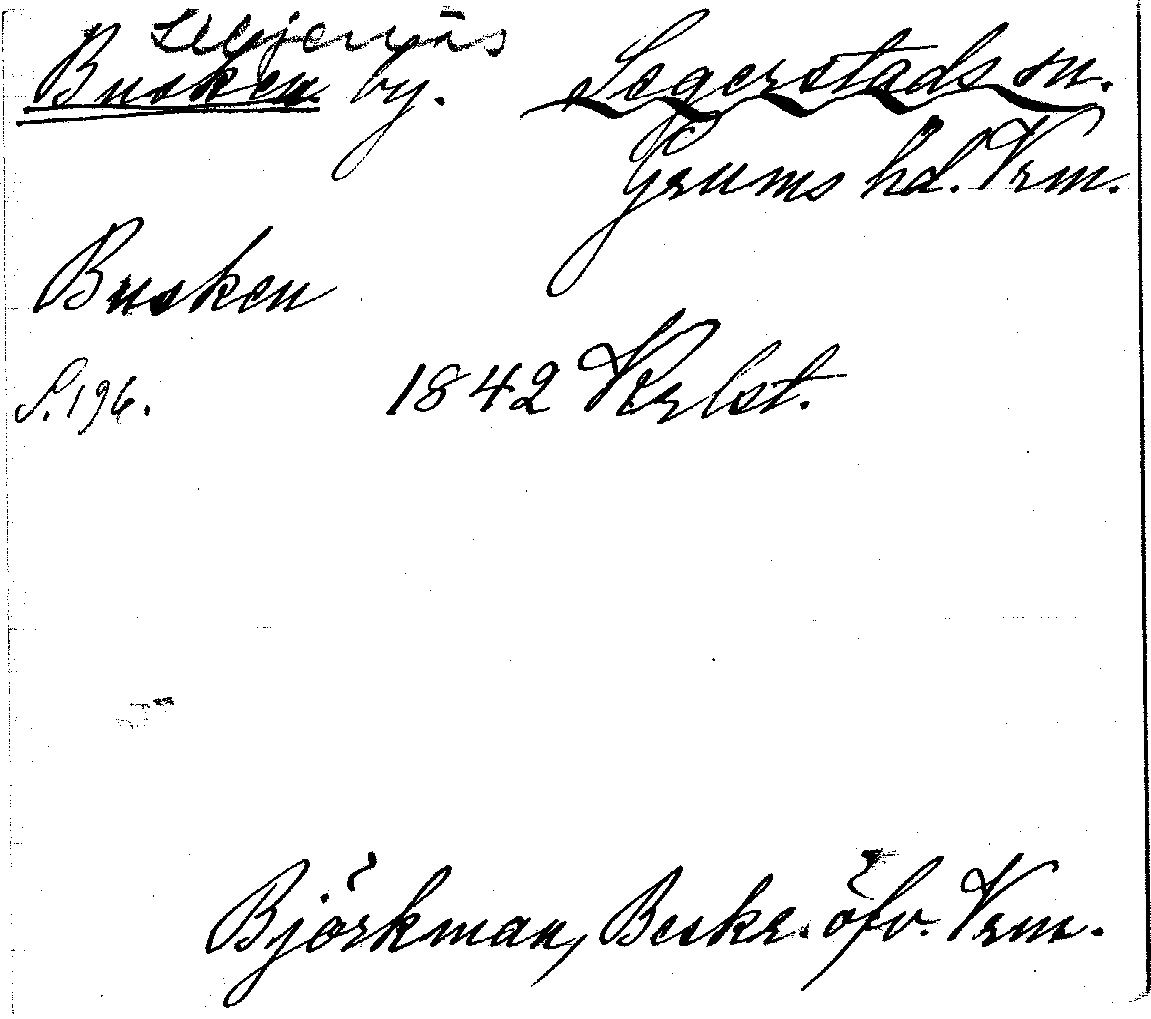 Liljenäs
Busken by. Segerstads sn.
Grums hd. Vrm.
Busken
S. 196. 1842 Krlst.
Björkman, Beskr. öfv. Vrm.